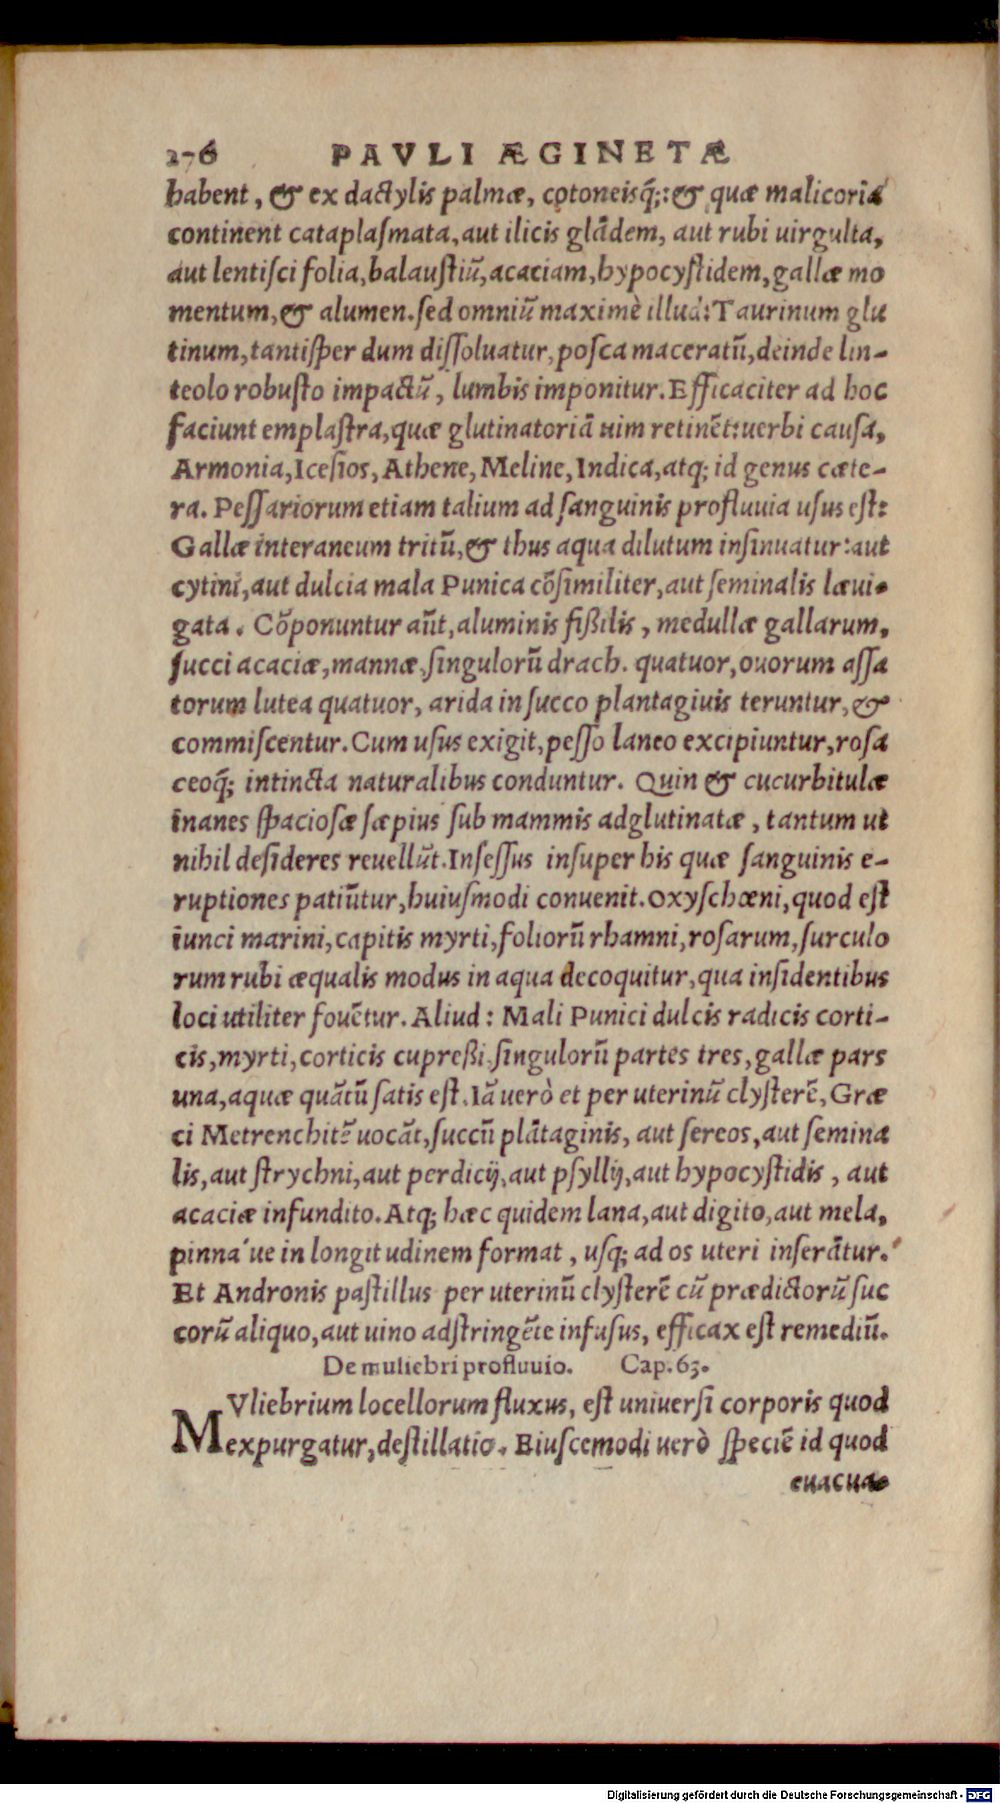 276 PAVLI ÆGINETÆ
habent, & ex dactylis palmæ, cotoneisq́;:& quæ malicoriā
continent cataplaſmata, aut ilicis glādem, aut rubi uirgulta,
aut lentiſci folia, balauſtiū, acaciam, hypocyſtidem, gallæ mo
mentum, & alumen. ſed omniū maximè illud: Taurinum glu
tinum, tantiſper dum diſſoluatur, poſca maceratū, deinde lin-
teolo robuſto impactū, lumbis imponitur. Efficaciter ad hoc
faciunt emplaſtra, quæ glutinatoriā uim retinēt: uerbi cauſa,
Armonia, Iceſios, Athene, Meline, Indica, atq; id genus cæte-
ra. Peſſariorum etiam talium ad ſanguinis profluuia uſus eſt:
Gallæ interaneum tritū, & thus aqua dilutum inſinuatur: aut
cytini, aut dulcia mala Punica cōſimiliter, aut ſeminalis læui-
gata. Cōponuntur aūt, aluminis fißilis, medullæ gallarum,
ſucci acaciæ, mannæ, ſingulorū drach. quatuor, ouorum aſſa
torum lutea quatuor, arida in ſucco plantagiuis teruntur, &
commiſcentur. Cum uſus exigit, peſſo laneo excipiuntur, roſa
ceoq́; intincta naturalibus conduntur. Quin & cucurbitulæ
inanes ſpacioſæ ſæpius ſub mammis adglutinatæ, tantum ut
nihil deſideres reuellūt. Inſeſſus inſuper his quæ ſanguinis e-
ruptiones patiūtur, huiuſmodi conuenit. Oxyſchœni, quod eſt
iunci marini, capitis myrti, foliorū rhamni, roſarum, ſurculo
rum rubi æqualis modus in aqua decoquitur, qua inſidentibus
loci utiliter fouētur. Aliud: Mali Punici dulcis radicis corti-
cis, myrti, corticis cupreßi, ſingulorū partes tres, gallæ pars
una, aquæ quātū ſatis eſt. Iā uerò et per uterinū clyſterē, Græ
ci Metrenchitē uocāt, ſuccū plātaginis, aut ſereos, aut ſemina
lis, aut ſtrychni, aut perdicij, aut pſyllij, aut hypocyſtidis, aut
acaciæ infundito. Atq; hæc quidem lana, aut digito, aut mela,
pinna ́ue in longitudinem format, uſq; ad os uteri inſerātur.
Et Andronis paſtillus per uterinū clyſterē cū prædictorū ſuc
corū aliquo, aut uino adſtringēte infuſus, efficax eſt remediū.
De muliebri profluuio. Cap. 63.
MVliebrium locellorum fluxus, eſt uniuerſi corporis quod
expurgatur, deſtillatio. Eiuſcemodi uerò ſpeciē id quod
euacua-
Digitalisierung gefördert durch die Deutsche Forschungsgemeinschaft - DFG